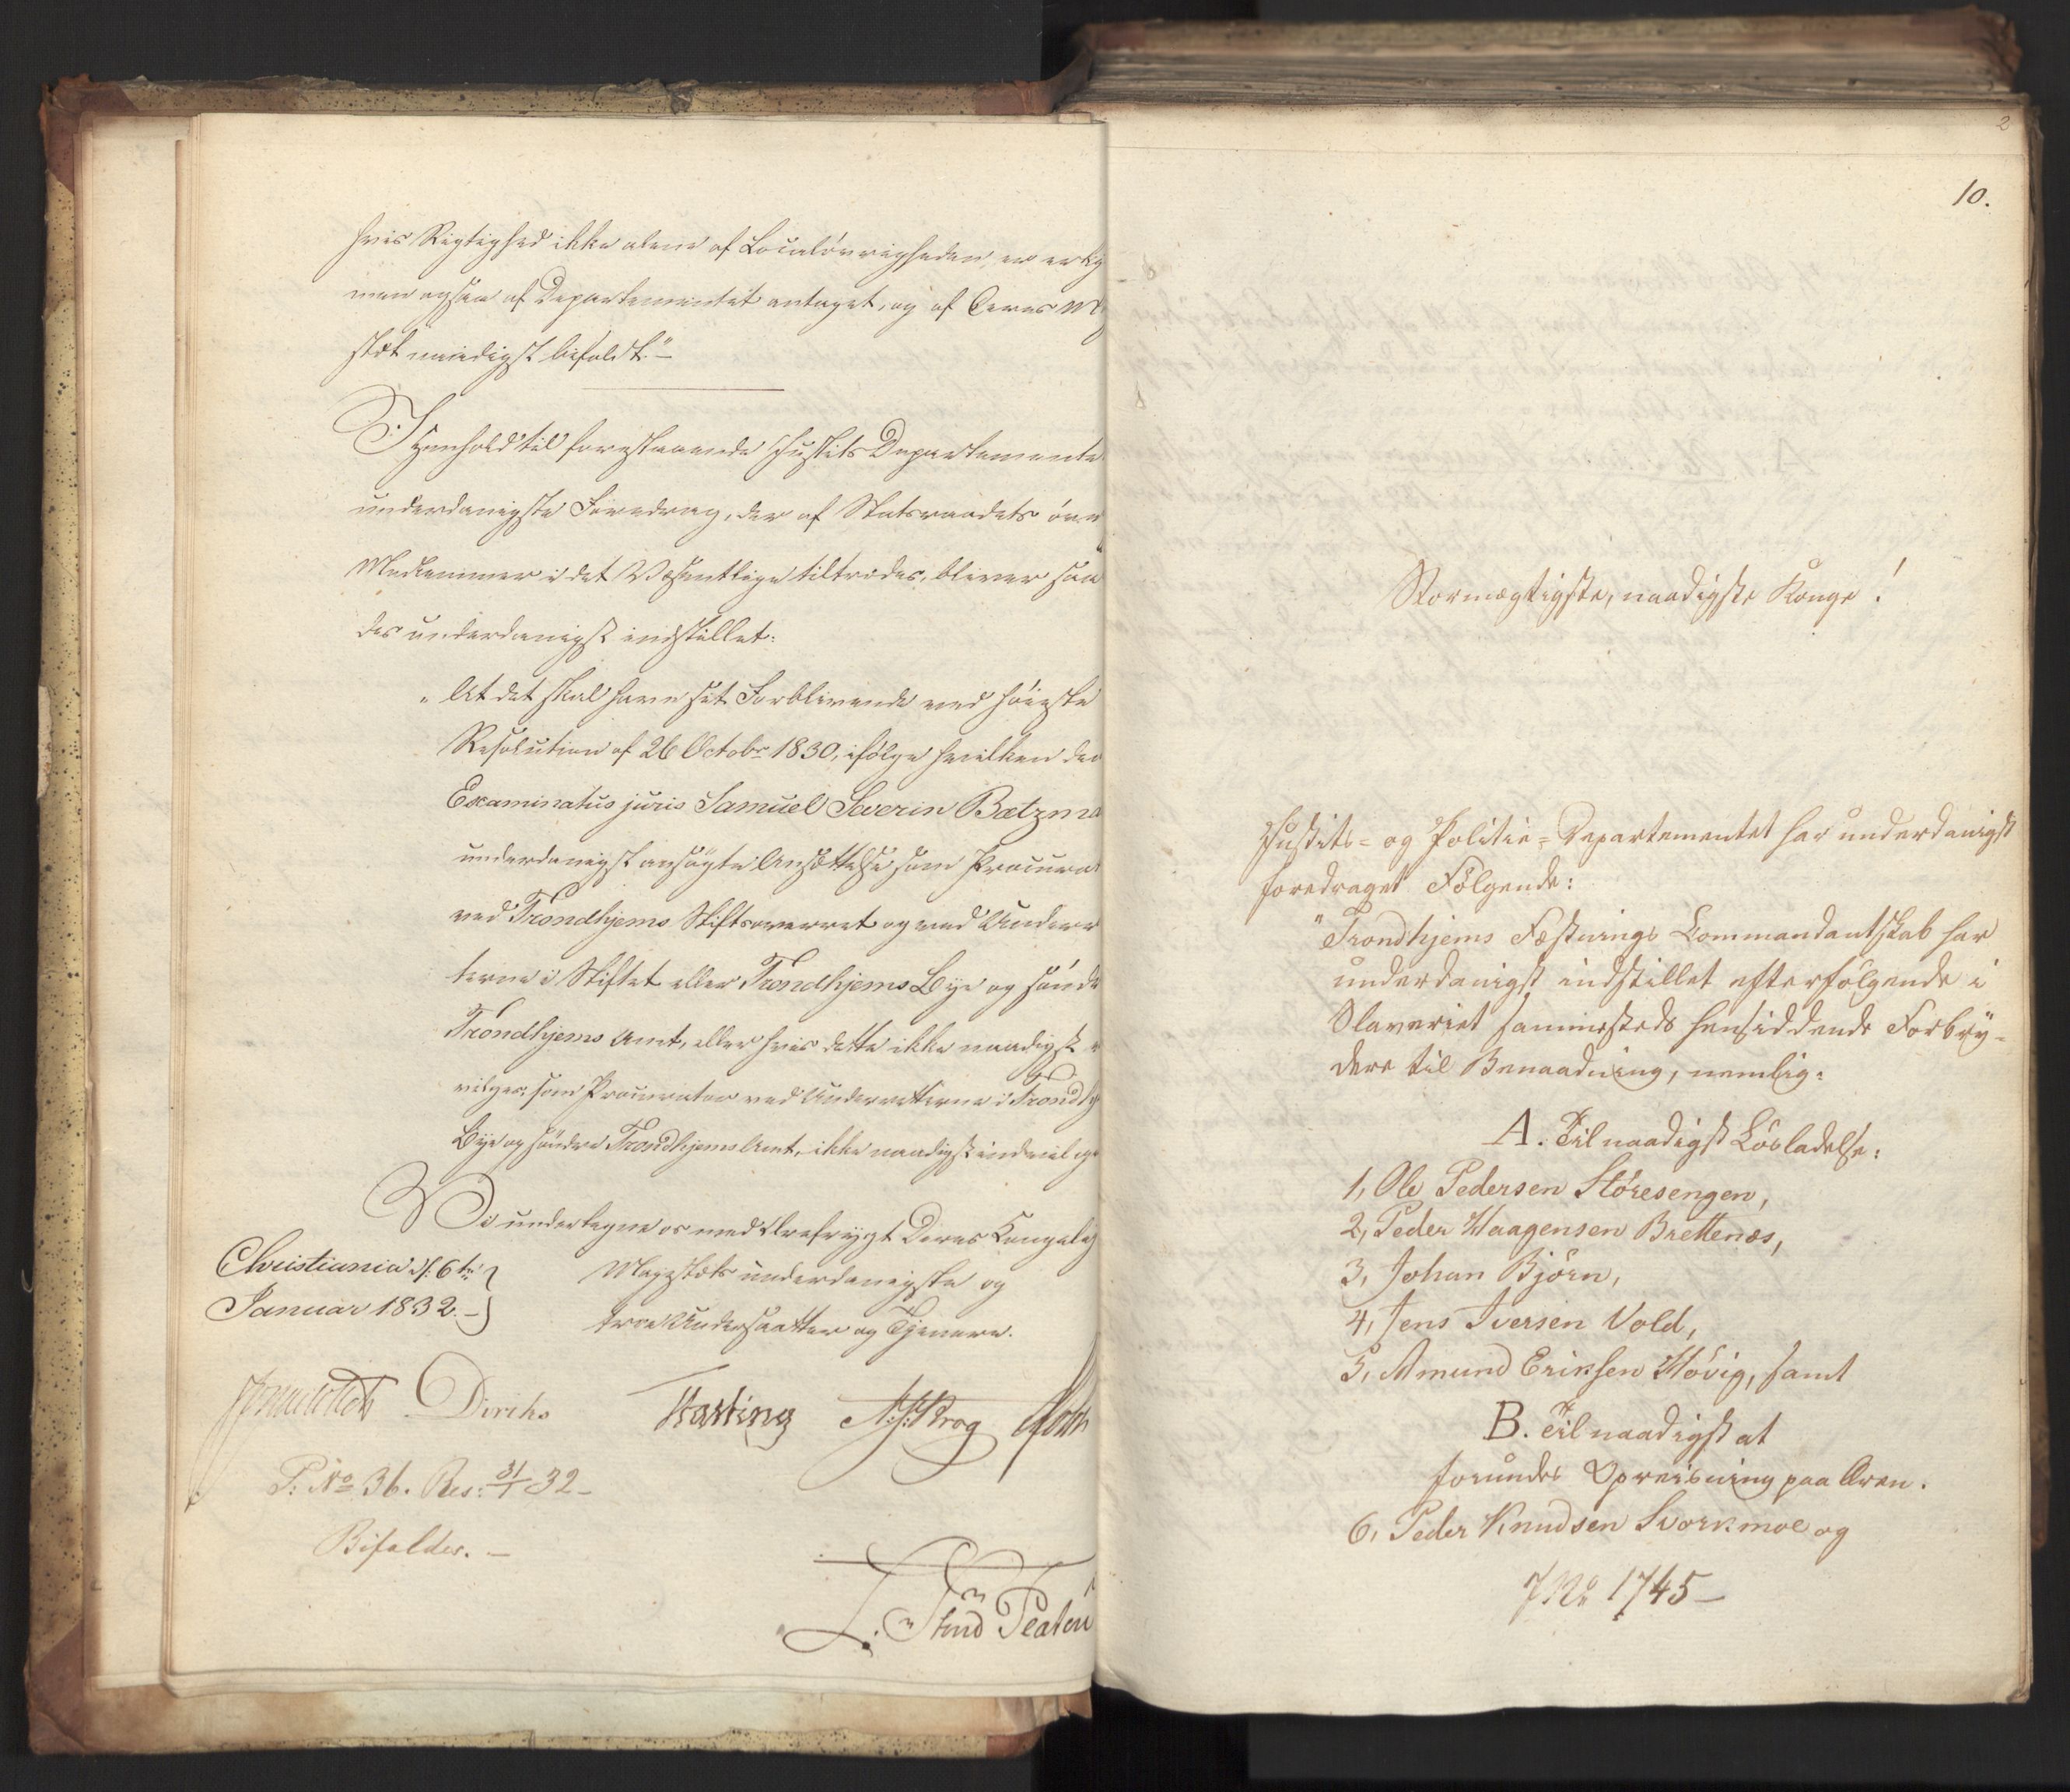 hvis Rigtighed ikke alene af Localövrigheden er erky
men ogsaa af Departementet antaget, og af Deres M
stæt naadigst bifaldt."-
I Henhold til forestaaende Justits Departements
underdanigste Foredrag, der af Statsraadets övr
Medlemmer i det Væsentlige tiltrædes, bliver saa
des underdanigst indstillet:
"At det skal have sit Forblivende ved höieste
Resolution af 26 Octobr 1830, ifölge hvilken den
Examinatus juris Samuel Severin Bætzma
underdanigst ansögte Ansættelse som Procurat
ved Trondhjems Stiftsoverret og ved Underr
terne i Stiftet eller Trondhjems Bye og söndr
Trondhjems Amt, eller hvis dette ikke naadigst
vilges, som Procurator ved Underretterne i Trondhj
Bye og söndre Trondhjems Amt, ikke naadigst indvilge
Vi undertegne os med Ærefrygt Deres Kongelig
Christiania d: 6te
Majestæts underdanigste og
Januar 1832.-
troe Undersaatter og Tjenere.
Diriks
P: No 36. Res: 31/1 32-
Bifaldes.-
2
10.
Stormægtigste, naadigste Konge!
Justits- og Politie-Departementet har underdanigst
foredraget Fölgende:
"Trondhjems Fæstnings Commandantskab har
underdanigst indstillet efterfölgende i
Slaveriet sammesteds hensiddende Forbry-
dere til Benaadning, nemlig:
A. Til naadigst Lösladelse:
1, Ole Pedersen Störesengen,
2, Peder Haagensen Brettenæs,
3, Johan Björn,
4, Jens Iversen Vold,
5, Amund Eriksen Hövig, samt
B. Til naadigst at
forundes Opreisning paa Æren.
6, Peder Knudsen Svorkmoe og
JNo 1745-